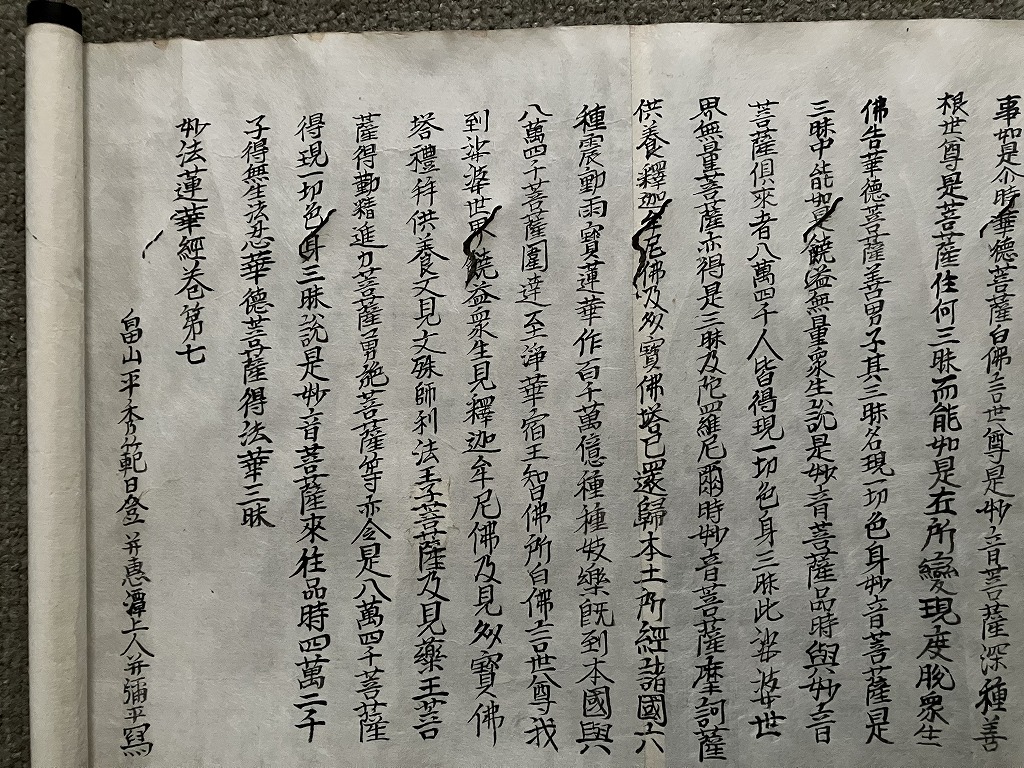 事如是尒時華德菩薩白佛言世尊是妙音菩薩深種善
根世尊是菩薩住何三昧而能如是在所變現度脫衆生
佛告華德菩薩善男子其三昧名現一切色身妙音菩薩是
三昧中能如是饒益無量衆生說是妙音菩薩品時與妙音
菩薩俱來者八萬四千人皆得現一切色身三昧此娑婆世
界無量菩薩亦得是三昧及陀羅尼爾時妙音菩薩摩訶薩
供養釋迦牟尼佛及多寶佛塔已還歸本土所經諸國六
種震動雨寶蓮華作百千萬億種種妓樂旣到本國與
八萬四千菩薩圍遶至淨華宿王智佛所白佛言世尊我
到娑婆世界饒益衆生見釋迦牟尼佛及見多寶佛
塔禮拜供養又見文殊師利法王子菩薩及見藥王菩
薩得勤精進力菩薩勇施菩薩等亦令是八萬四千菩薩
得現一切色身三昧說是妙音菩薩來往品時四萬二千
子得無生法忍華德菩薩得法華三昧
妙法蓮華經卷第七
畠山平秀範日登并惠潭上人并彌平寫